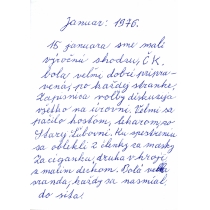 Január: 1976.
15 januára sme mali
výročnú schôdzu, Č K.
bola veľmi dobre pripra-
vená, po každej stránke,
Zápisnica voľby diskusija
všetko na úrovni. Veľmi sa
páčilo hosťom, lekárom zo
Starej Ľubovni. Ku spestreniu
sa obliekli 2 členky za masky
Za cigánku, druhá v kroji
s malým dieťom. Bola veľká
sranda, každý sa nasmial
do sita!